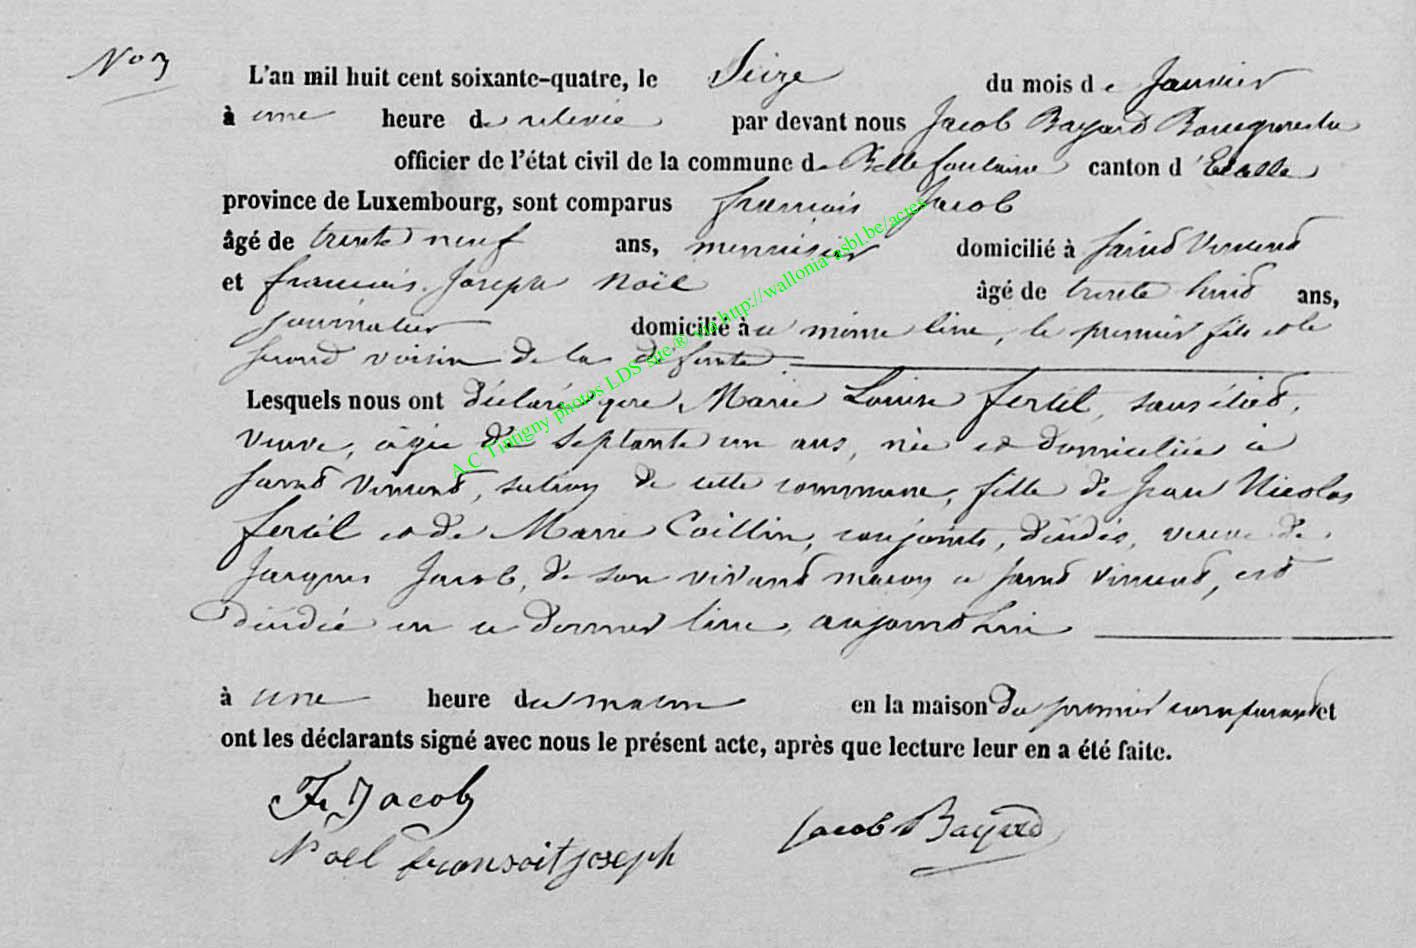 No 3
L'an mil huit cent soixante-quatre, le Seize du mois de Janvier
à une heure de relevée par devant nous Jacob Bayard Bourgmestre
officier de l'état civil de la commune de Bellefontaine canton d'Etalle
province de Luxembourg, sont comparus françois Jacob
âgé de trente neuf ans, menuisier domicilié à Saint Vincent
et françois Joseph Noël âgé de trente huit ans,
journalier domicilié à ce même lieu, le premier fils et le
second voisin de la défunte.
Lesquels nous ont déclaré que Marie Louise fertil, sans état,
veuve, âgée de septante un ans, née et domiciliée à
Saint Vincent, section de cette commune, fille de Jean Nicolas
fertil et de Marie Collin, conjoints, décédés, veuve de
Jacques Jacob, de son vivant maçon à Saint Vincent, est
décédée en ce dernier lieu, aujourd'hui
à une heure du matin en la maison du premier comparant et
ont les déclarants signé avec nous le présent acte, après que lecture leur en a été faite.
Fr Jacob
Jacob Bayard
Noel fransoit joseph
A.C Tintigny photos LDS site ® via http://wallonia-asbl.be/actes